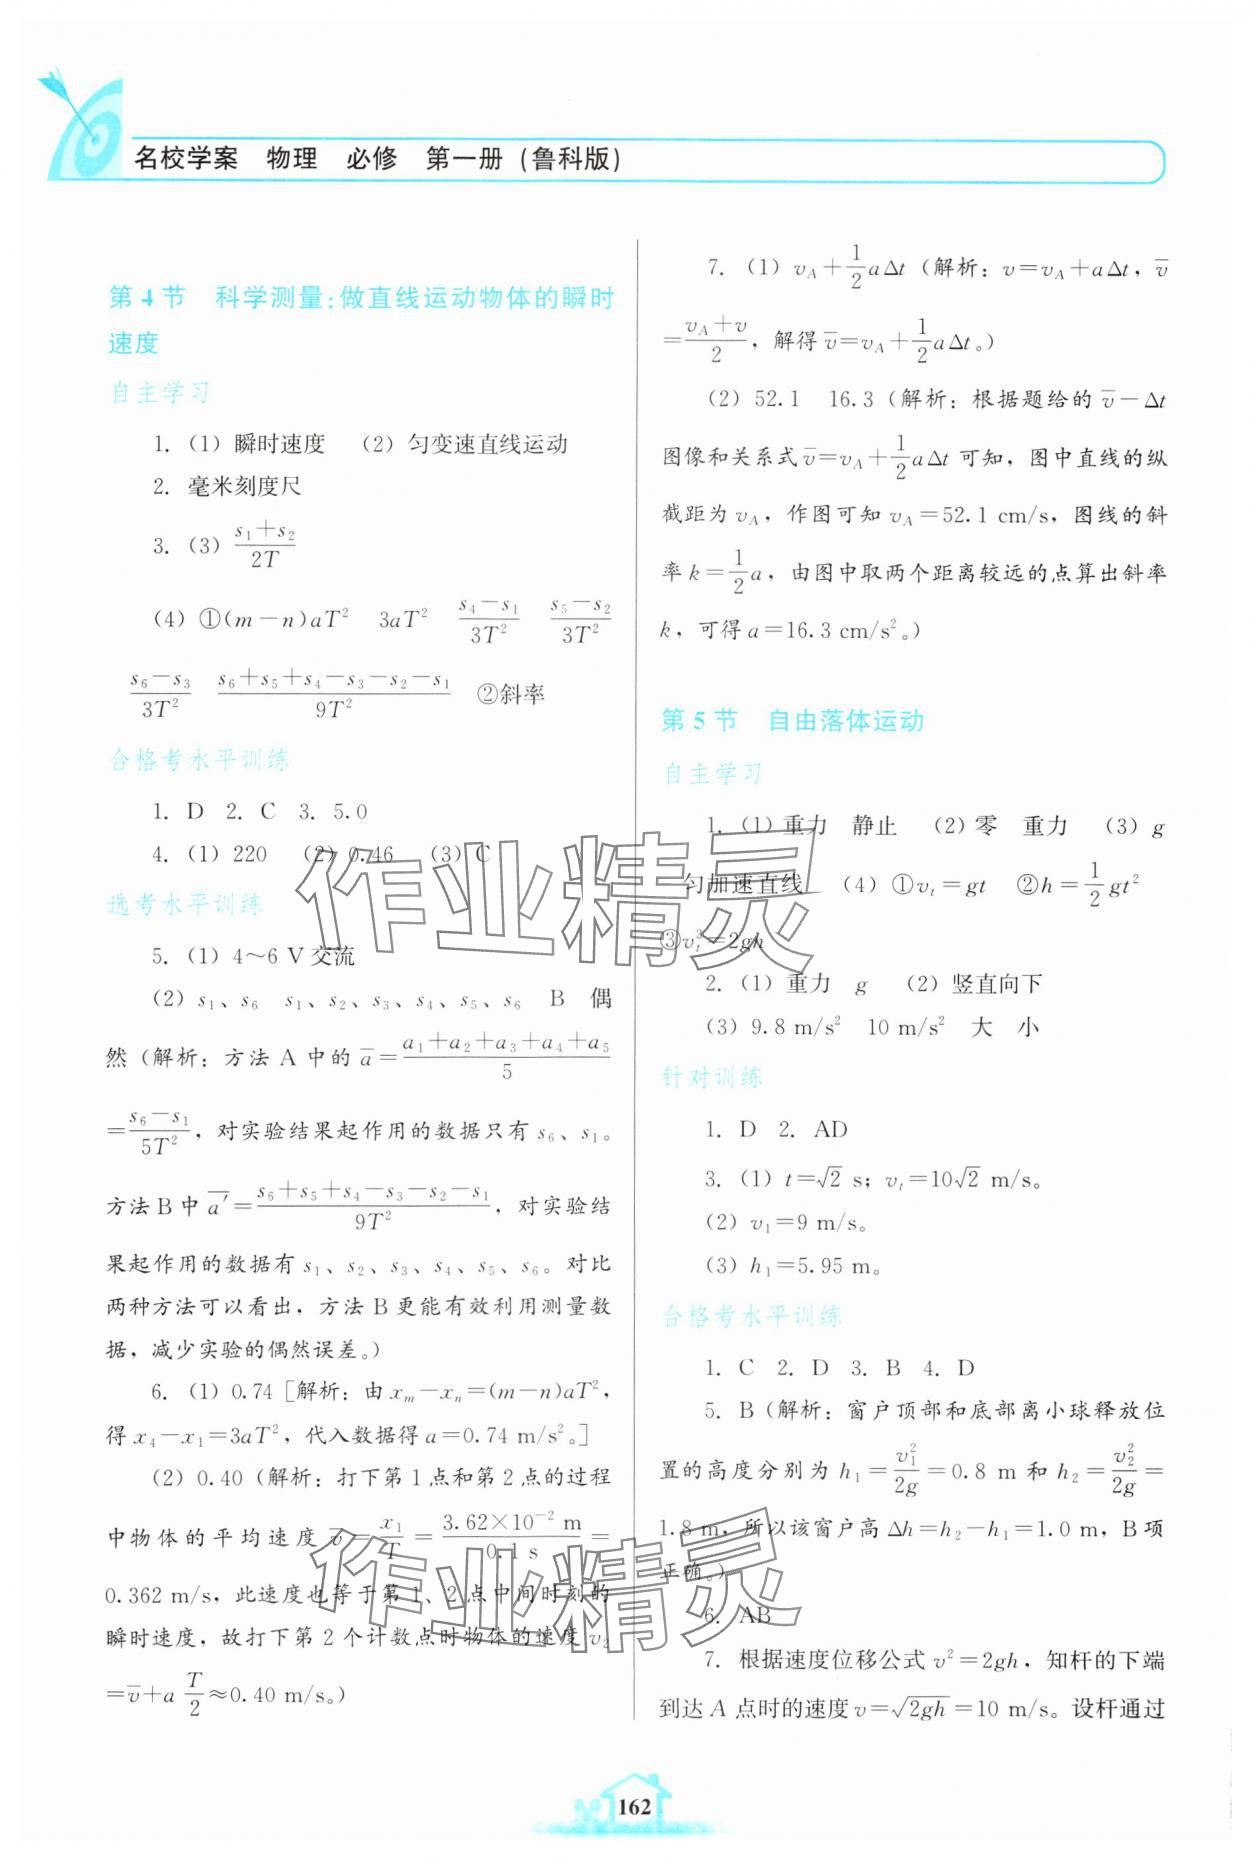 名校学案 物理 必修 第一册(鲁科版)
第4节 科学测量:做直线运动物体的瞬时
速度
自主学习
1. (1) 瞬时速度 (2) 匀变速直线运动
2. 毫米刻度尺
3. (3) \frac{s_1+s_2}{2T}
(4) ①(m-n)aT^2 3aT^2 \frac{s_4-s_1}{3T^2} \frac{s_5-s_2}{3T^2}
\frac{s_6-s_3}{3T^2} \frac{s_6+s_5+s_4-s_3-s_2-s_1}{9T^2} ②斜率
合格考水平训练
1. D 2. C 3. 5.0
4. (1) 220 (2) 0.46 (3) C
选考水平训练
5. (1) 4~6 V 交流
(2) s_1、s_6 s_1、s_2、s_3、s_4、s_5、s_6 B 偶
然 (解析:方法 A 中的 \overline{a}=\frac{a_1+a_2+a_3+a_4+a_5}{5}
=\frac{s_6-s_1}{5T^2},对实验结果起作用的数据只有 s_6、s_1。
方法 B 中 \overline{a'}=\frac{s_6+s_5+s_4-s_3-s_2-s_1}{9T^2},对实验结
果起作用的数据有 s_1、s_2、s_3、s_4、s_5、s_6。对比
两种方法可以看出,方法 B 更能有效利用测量数
据,减少实验的偶然误差。)
6. (1) 0.74 [解析:由 x_m-x_n=(m-n)aT^2,
得 x_4-x_1=3aT^2,代入数据得 a=0.74 m/s^2。]
(2) 0.40 (解析:打下第 1 点和第 2 点的过程
中物体的平均速度 \overline{v}=\frac{x_1}{T}=\frac{3.62×10^{-2} m}{0.1 s}=
0.362 m/s,此速度也等于第 1、2 点中间时刻的
瞬时速度,故打下第 2 个计数点时物体的速度 v_2
=\overline{v}+a \frac{T}{2}≈0.40 m/s。)
7. (1) v_A+\frac{1}{2}aΔt (解析:v=v_A+aΔt,\overline{v}
=\frac{v_A+v}{2},解得 \overline{v}=v_A+\frac{1}{2}aΔt。)
(2) 52.1 16.3 (解析:根据题给的 \overline{v}-Δt
图像和关系式 \overline{v}=v_A+\frac{1}{2}aΔt 可知,图中直线的纵
截距为 v_A,作图可知 v_A=52.1 cm/s,图线的斜
率 k=\frac{1}{2}a,由图中取两个距离较远的点算出斜率
k,可得 a=16.3 cm/s^2。)
第5节 自由落体运动
自主学习
1. (1) 重力 静止 (2) 零 重力 (3) g
匀加速直线 (4) ①v_t=gt ②h=\frac{1}{2}gt^2
③v_t^2=2gh
2. (1) 重力 g (2) 竖直向下
(3) 9.8 m/s^2 10 m/s^2 大 小
针对训练
1. D 2. AD
3. (1) t=\sqrt{2} s;v_t=10\sqrt{2} m/s。
(2) v_1=9 m/s。
(3) h_1=5.95 m。
合格考水平训练
1. C 2. D 3. B 4. D
5. B (解析:窗户顶部和底部离小球释放位
置的高度分别为 h_1=\frac{v_1^2}{2g}=0.8 m 和 h_2=\frac{v_2^2}{2g}=
1.8 m,所以该窗户高 Δh=h_2-h_1=1.0 m,B 项
正确。)
6. AB
7. 根据速度位移公式 v^2=2gh,知杆的下端
到达 A 点时的速度 v=\sqrt{2gh}=10 m/s。设杆通过
162
作业精灵
作业精灵